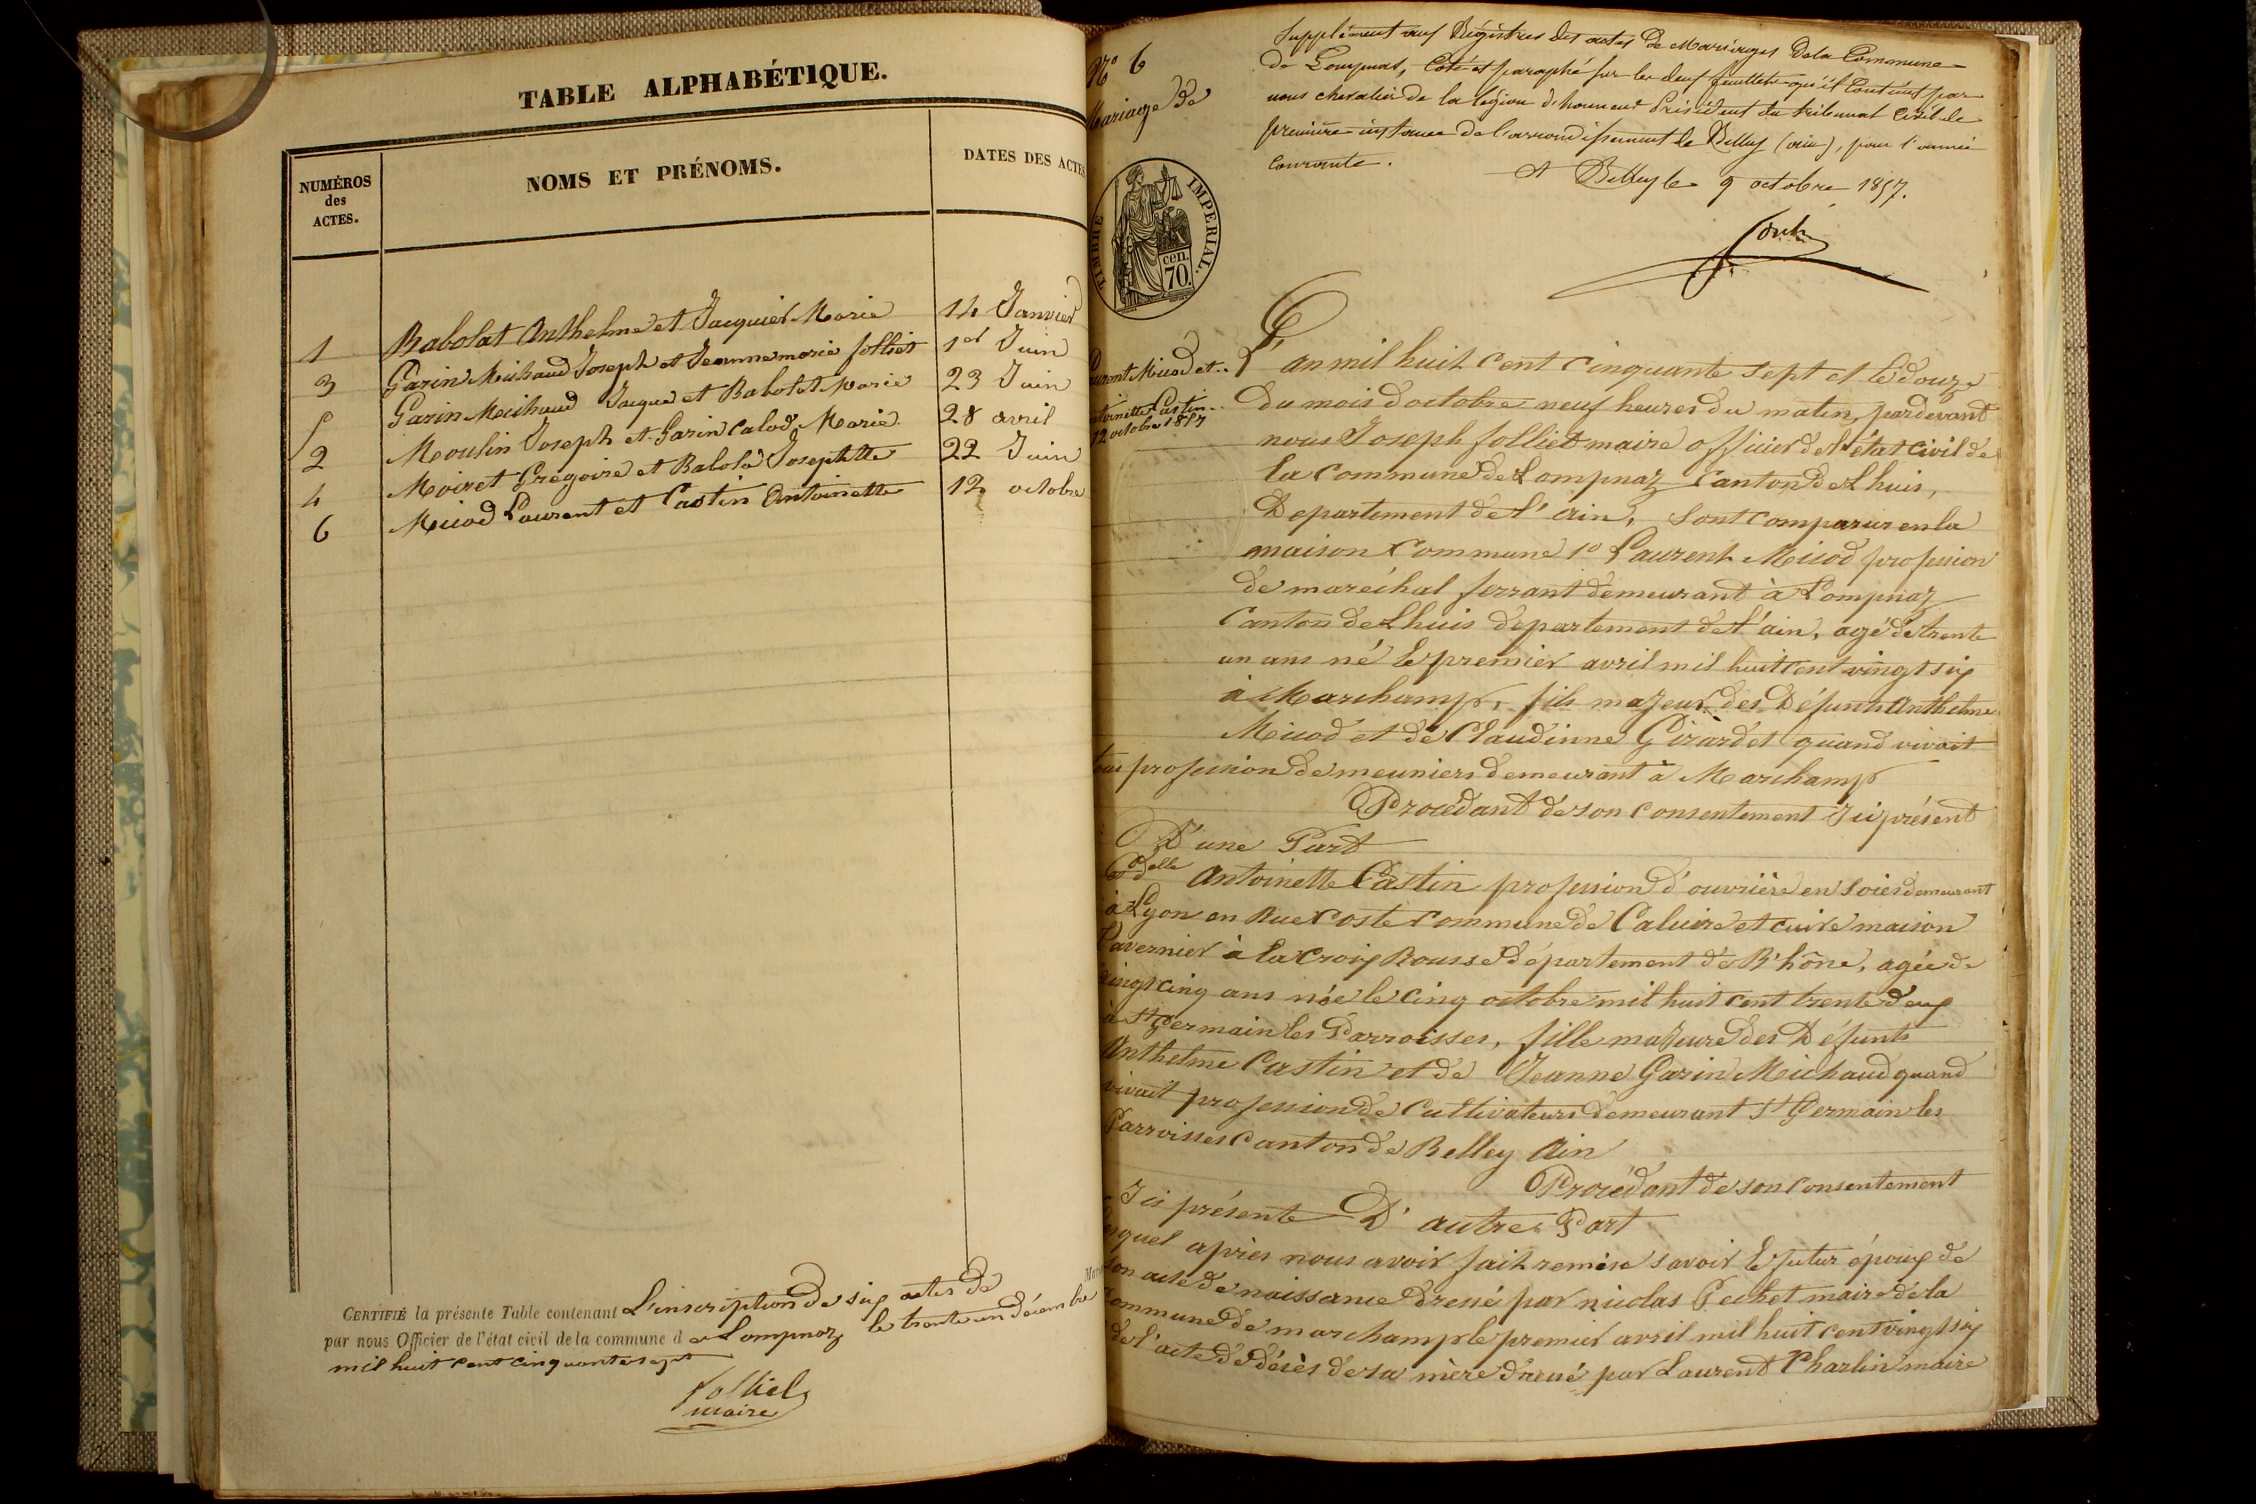 TABLE ALPHABÉTIQUE.
NUMÉROS des ACTES.
NOMS ET PRÉNOMS.
DATES DES ACTES
1 Babolat Anthelme et Jacquier Marie 14 Janvier
3 Garin Michaud Joseph et Jeanne marie Jolliet 1er Juin
5 Garin Michaud Jacque et Babolat Marie 23 Juin
2 Moulin Joseph et Garin Calod Marie 28 avril
4 Moiret Gregoire et Babolat Josephtte 22 Juin
6 Micod Laurent et Castin Antoinette 12 octobre
CERTIFIÉ la présente Table contenant L'inscription de six actes de
par nous Officier de l'état civil de la commune d e Lompnaz le trente un décembre
mil huit cent cinquante sept
Jolliet
maire
No 6
Mariage de
TIMBRE IMPERIAL.
70 cen.
Laurent Micod et
Antoinette Castin
12 octobre 1857
Supplément aux Régistres des actes de Mariages de la Commune
de Lompnas, Coté et paraphé sur les deux feuillets qu'il Contient par
nous chevalier de la légion d'honneur Président du tribunal Civil de
première instance de l'arrondissement de Belley (ain), pour l'année
courante.
A Belley le 9 octobre 1857.
L'an mil huit cent cinquante sept et le douze
du mois d'octobre neuf heures du matin, pardevant
nous Joseph Jolliet maire officier de l'état civil de
la commune de Lompnaz Canton de Lhuis,
Departement de l'Ain, sont comparus en la
maison commune 1o Laurent Micod profession
de maréchal ferrant demeurant à Lompnaz
Canton de Lhuis departement de l'ain, agé de trente
un ans né le premier avril mil huit cent vingt six
à Marchamps, fils majeur des Défunts Anthelme
Micod et de Claudinne Girardet quand vivait
profession de meuniers demeurant à Marchamps
Procédant de son consentement Ici présent
D'une Part
et delle Antoinette Castin profession d'ouvrière en soies demeurant
à Lyon en Rue Coste Commune de Caluire et cuire maison
Tavernier à la Croix Rousse département de R'hône, agée de
vingt cinq ans née le cinq octobre mil huit cent trente deux
à St Germain les Parroisses, fille majeure des Défunts
Anthelme Castin et de Jeanne Garin Michaud quand
vivait profession de Cultivateurs demeurant St Germain les
Parroisses Canton de Belley Ain
Procédant de son consentement
Ici présente D'autre Part
lesquel après nous avoir fait remise savoir le futur époux de
son acte de naissance dressé par nicolas Pechet maire de la
commune de marchamps le premier avril mil huit cent vingt six
de l'acte de décès de sa mère dressé par Laurent Charlin maire